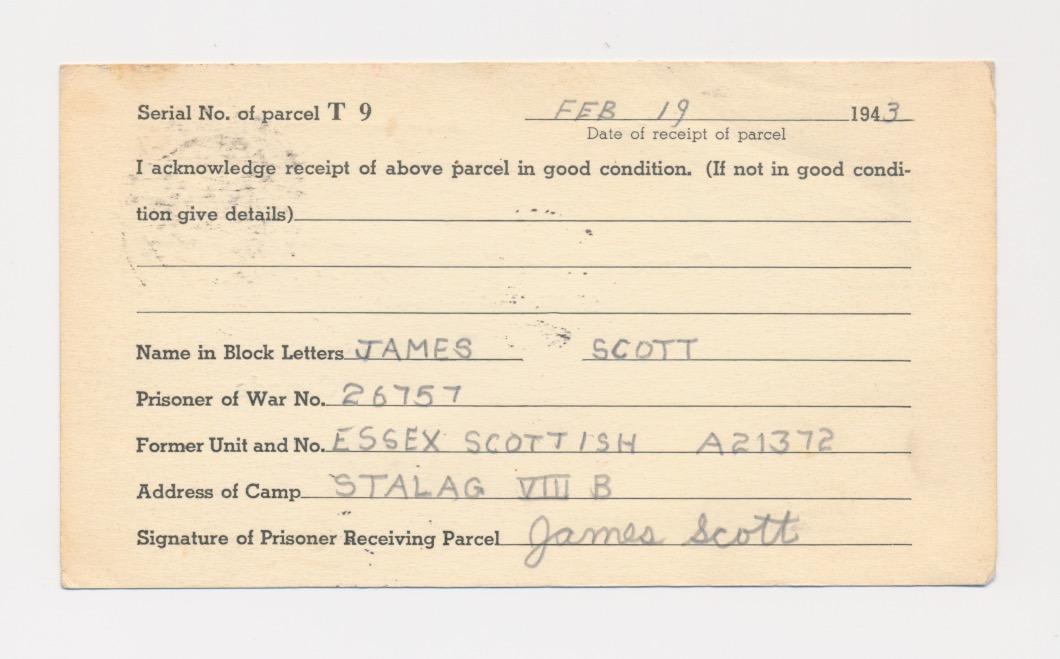 Serial No. of parcel T 9 FEB 19 1943
Date of receipt of parcel
I acknowledge receipt of above parcel in good condition. (If not in good condi-
tion give details)
Name in Block Letters JAMES SCOTT
Prisoner of War No. 26757
Former Unit and No. ESSEX SCOTTISH A21372
Address of Camp STALAG VIII B
Signature of Prisoner Receiving Parcel James Scott